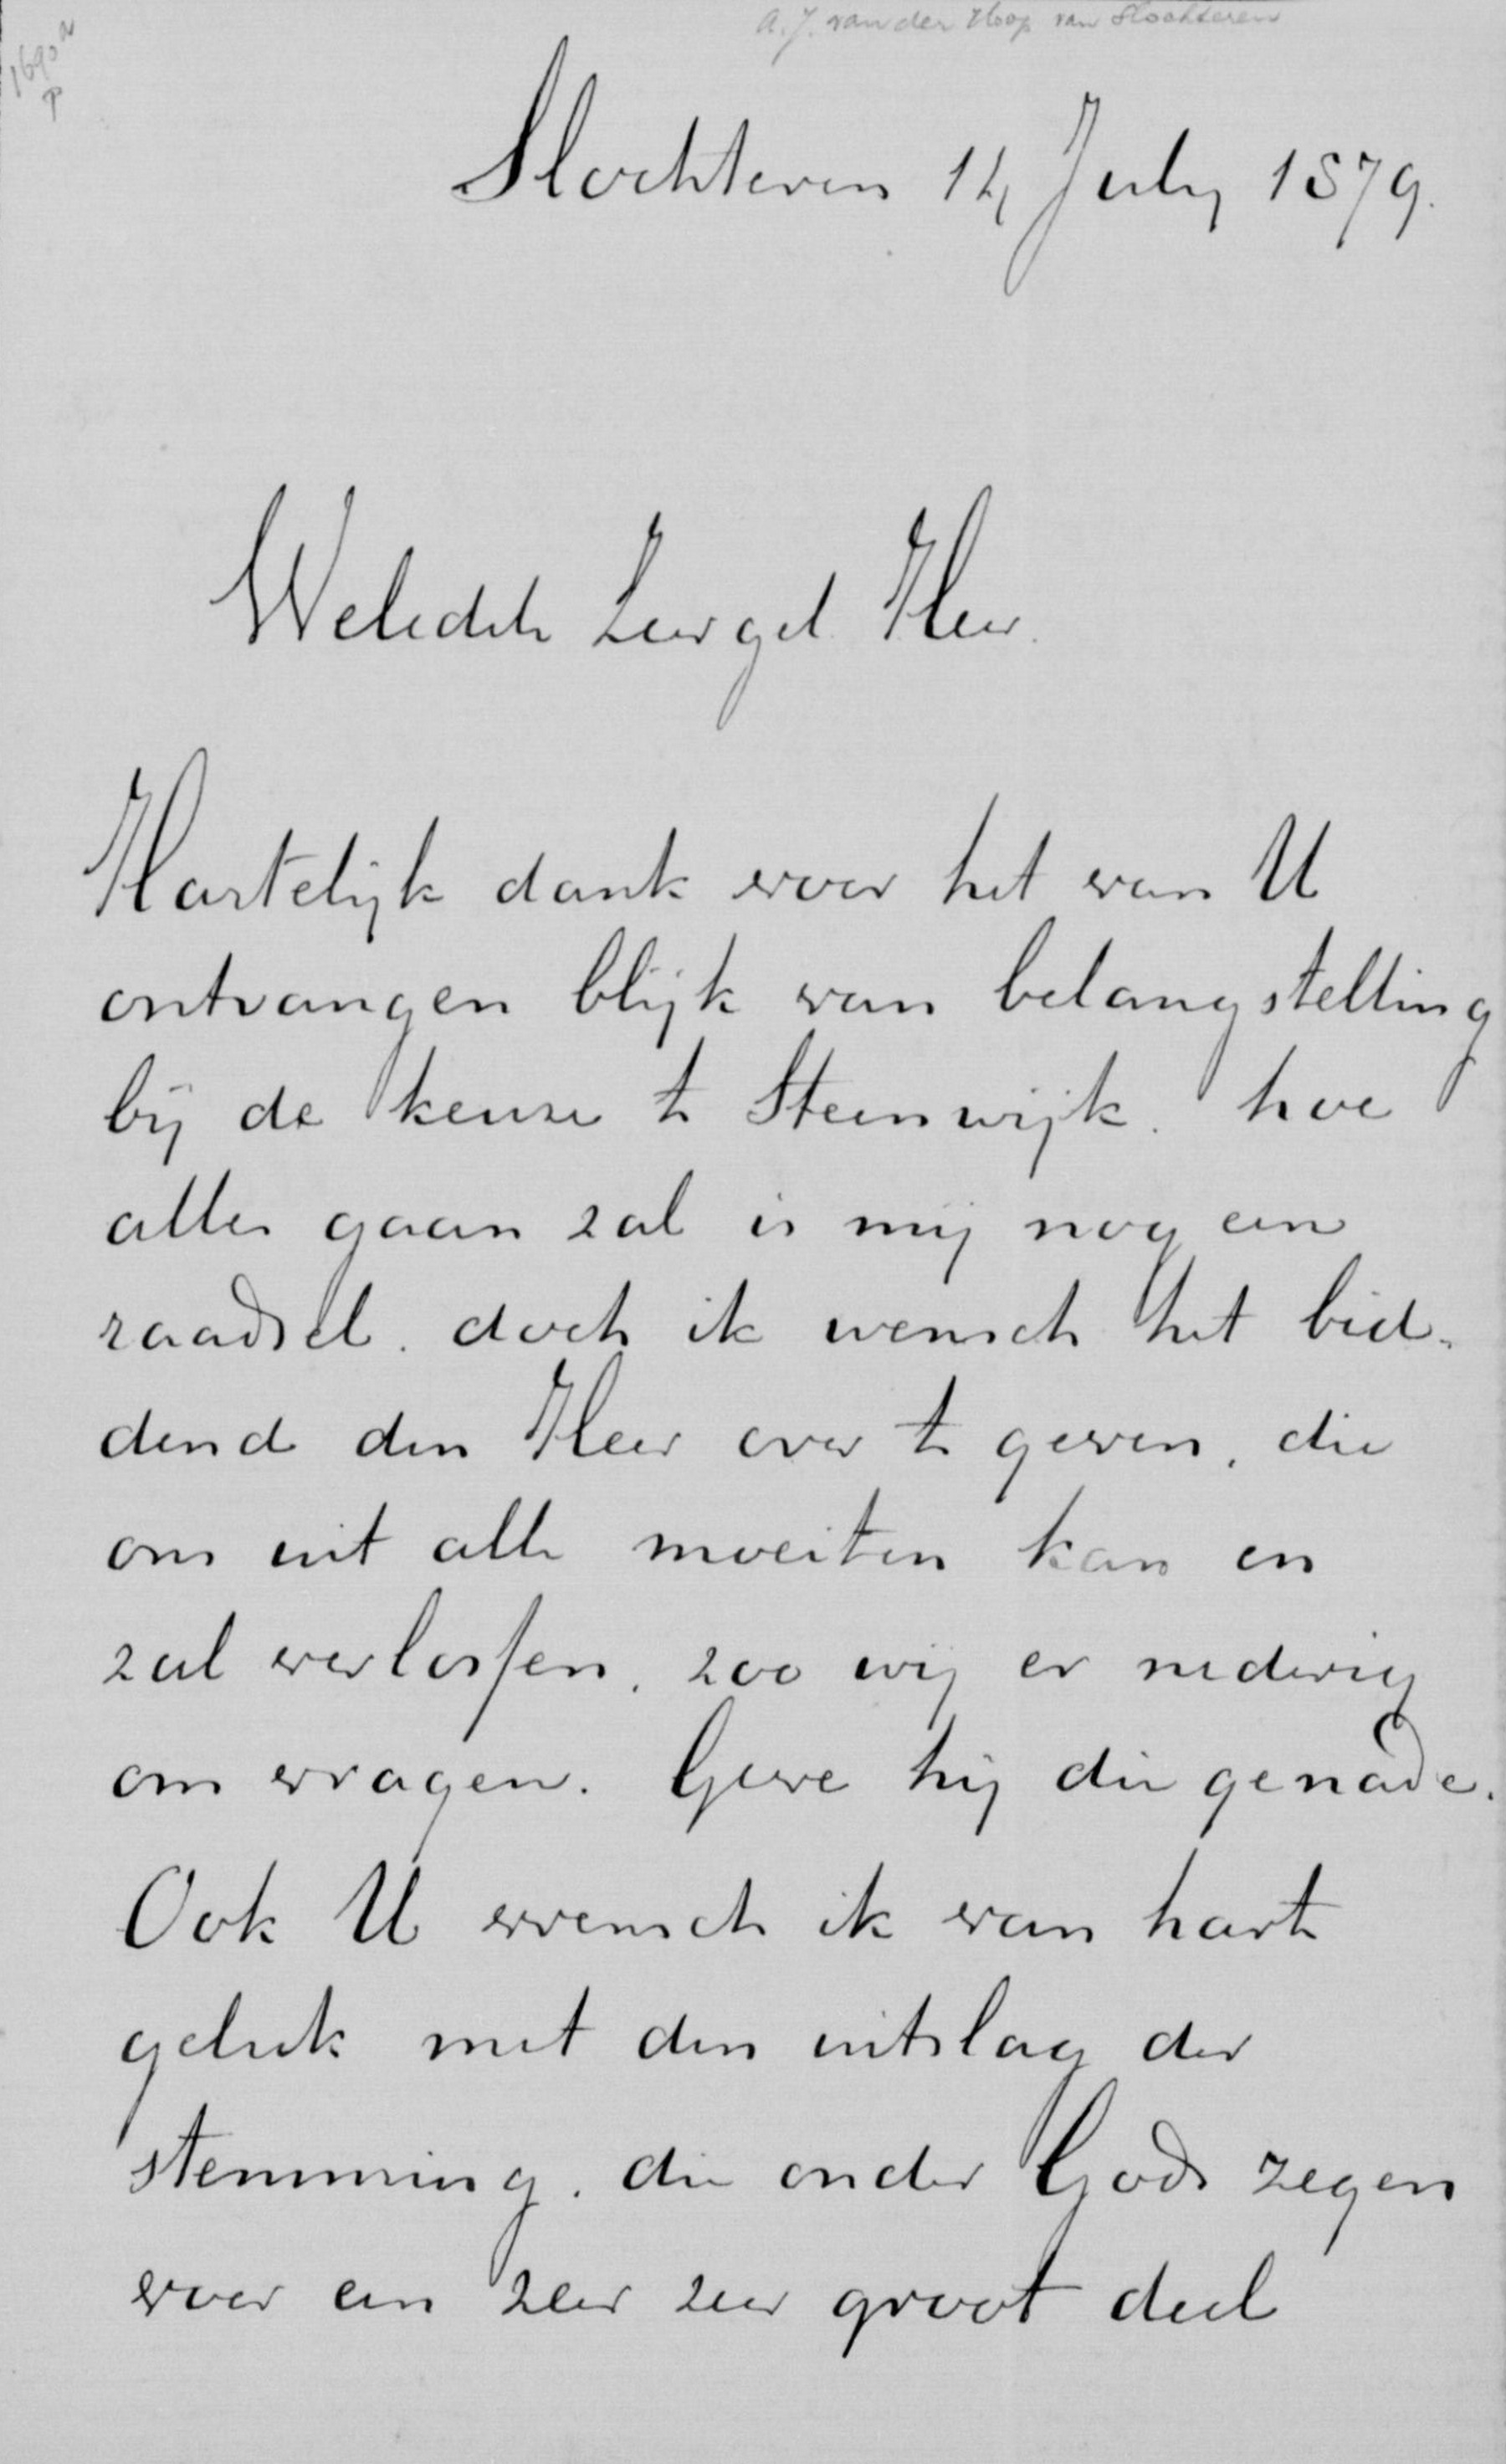 A. J. van der Hoop van Slochteren
1690
P
Slochteren 14 July 1879.
Weledele Zeergel. Heer.
Hartelijk dank voor het van U
ontvangen blijk van belangstelling
bij de keuze te Steenwijk. hoe
alles gaan zal is mij nog een
raadsel. doch ik wensch het bid-
dend den Heer over te geven, die
ons uit alle moeiten kan en
zal verlossen, zoo wij er nederig
om vragen. Geve hij die genade.
Ook U wensch ik van harte
geluk met den uitslag der
stemming. die onder Gods zegen
voor een zeer zeer groot deel